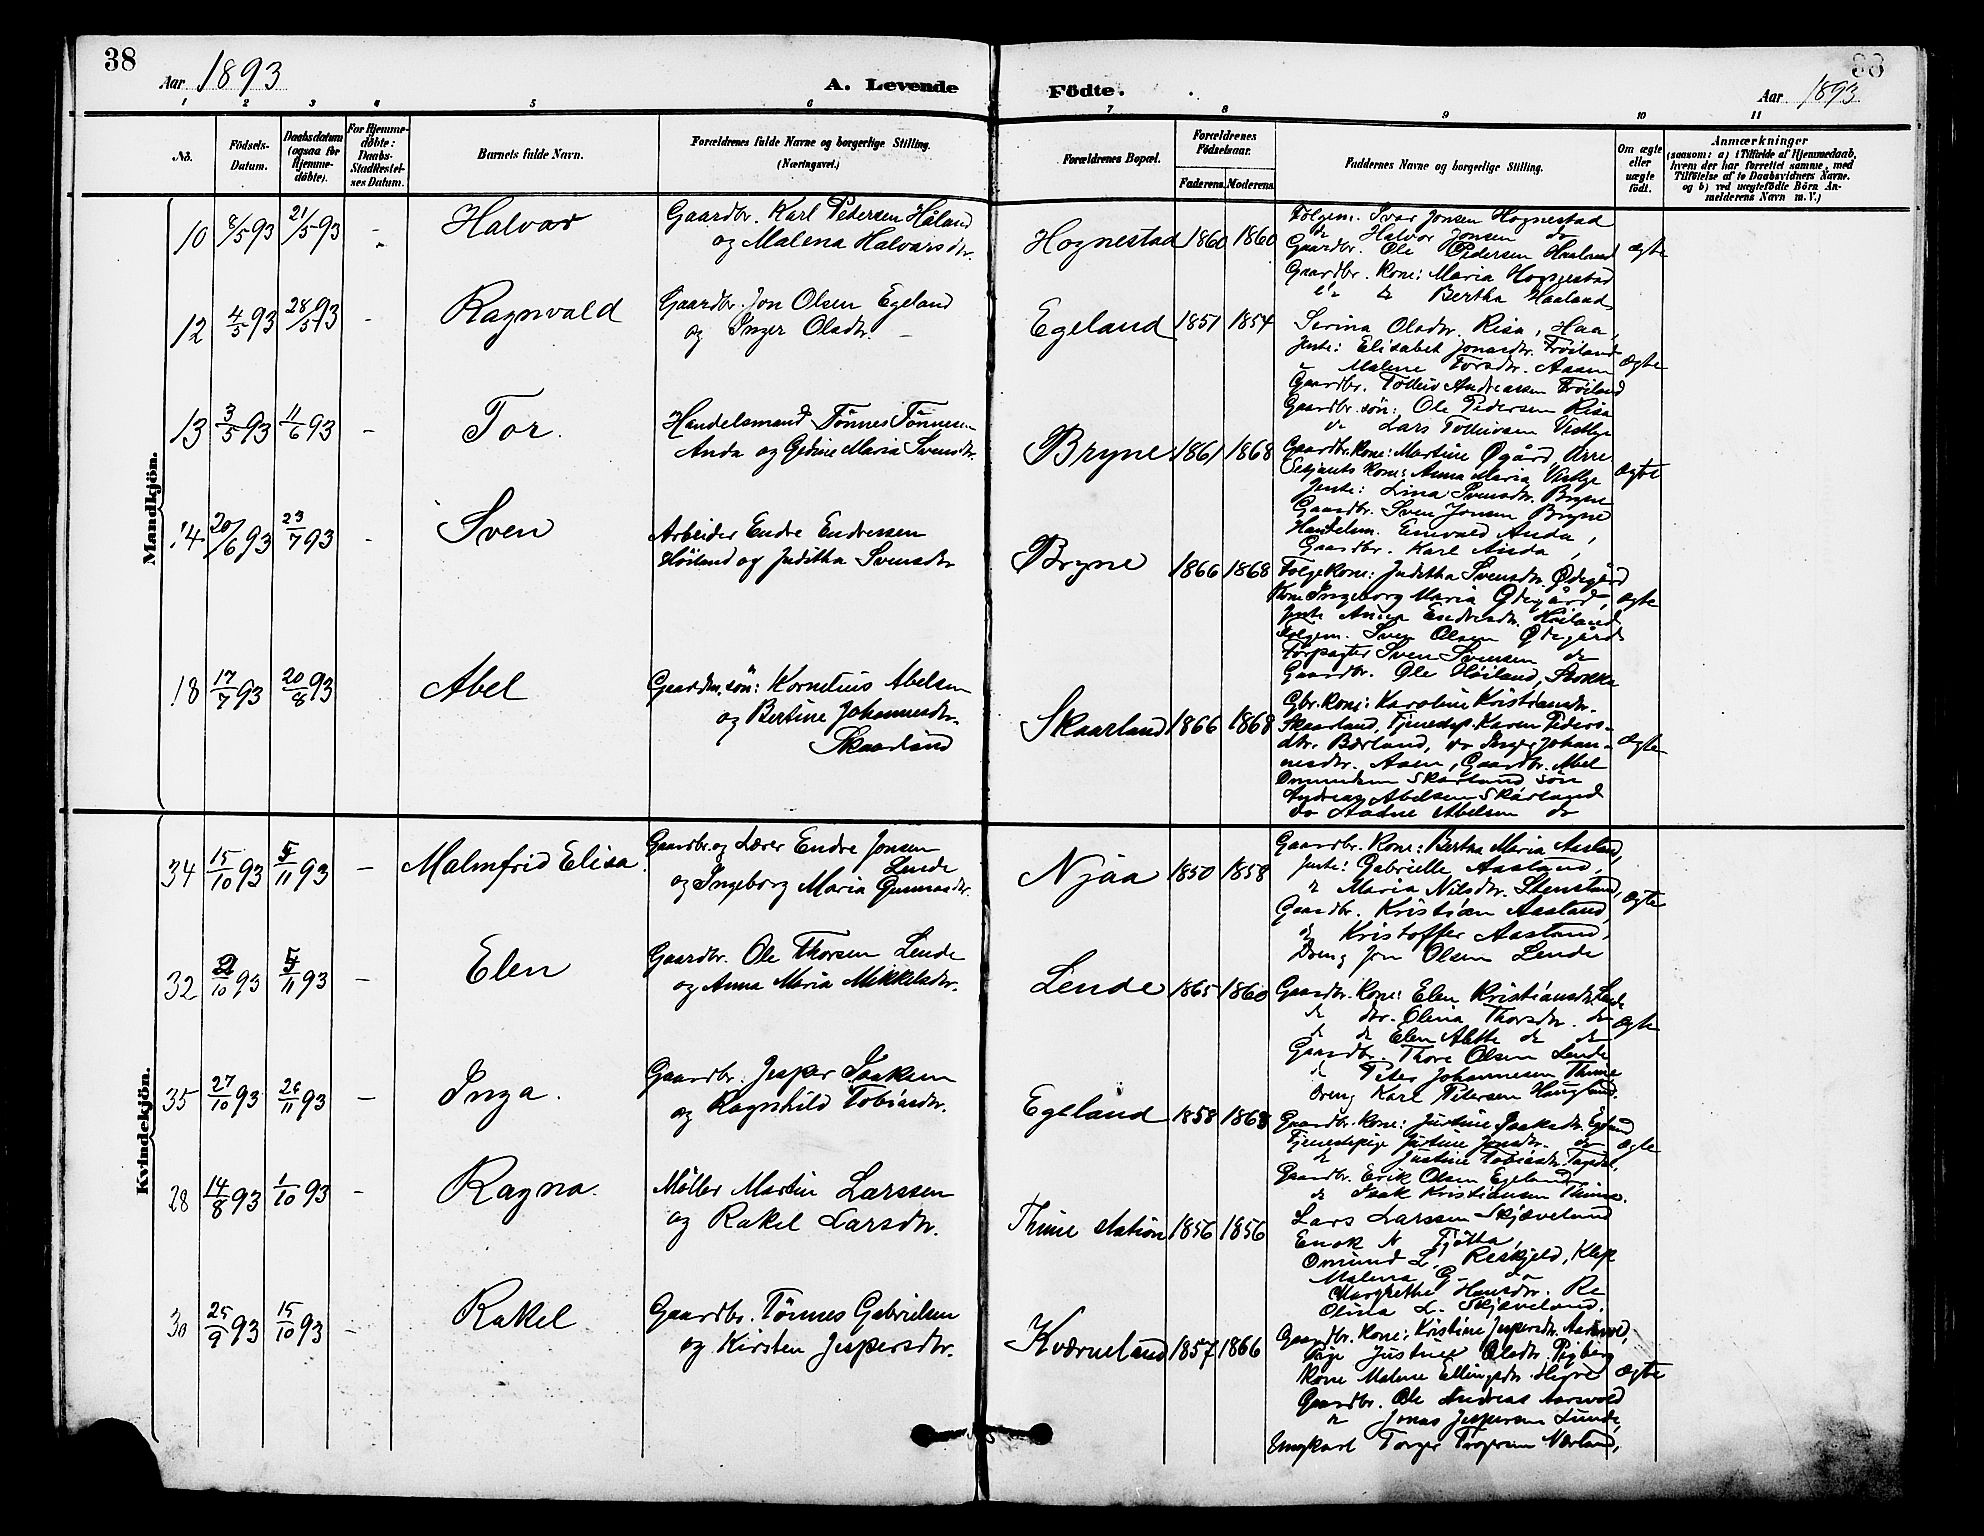 38
38
Aar 1893
A. Levende
Födte.
Aar 1893
1 2 3 4 5 6 7 8 9 10 11
No.
Födsels-Datum.
Daabsdatum (ogsaa for Hjemmedöbte).
For Hjemmedöbte: Daabs-Stadfæstelses Datum.
Barnets fulde Navn.
Forældrenes fulde Navne og borgerlige Stilling. (Næringsvei.)
Forældrenes Bopæl.
Forældrenes Födselsaar.
Faderens. Moderens.
Faddernes Navne og borgerlige Stilling.
Om ægte eller uægte födt.
Anmærkninger
(saasom: a) i Tilfælde af Hjemmedaab,
hvem der har forrettet samme, med
Tilföielse af to Daabsvidners Navne.
og b) ved uægtefödte Börn An-
melderens Navn m. V.)
Mandkjön.
10 8/5 93 21/5 93 - Halvor
Gaardbr. Karl Pedersen Håland
og Malena Halvorsdtr.
Hognestad 1860 1860
Folgem. Ivar Jonsen Hognestad
do Halvor Jonsen do
Gaardbr. Ole Pedersen Haaland
Gaardbr. Kone: Maria Hognestad
do do Bertha Haaland
ægte
12 4/5 93 28/5 93 - Ragnvald
Gaardbr. Jon Olsen Egeland
og Inger Oladtr. -
Egeland 1851 1854
Serina Oladtr. Risa, Haa,
Jente: Elisabet Jonasdtr. Fröiland
" Malene Torsdtr. Aasen
Gaardbr. Tolleiv Andreassen Fröiland
Gaardbr. søn: Ole Pedersen Risa
do Lars Tolleivsen Vestly
ægte
13 3/5 93 11/6 93 - Tor.
Handelsmand Tönnes Tönnesen
Anda og Gidine Maria Svensdtr.
Bryne 1861 1868
Gaardbr. Kone: Martine Øgård, Orre
Kone: Anna Maria Vestly
Jente: Lina Svensdtr. Bryne
Gaardbr. Sven Jonsen Bryne
Handelsm. Enevald Anda,
Gaardbr. Karl Anda,
ægte
14 20/6 93 23/7 93 - Sven
Arbeider Endre Endressen
Höiland og Juditha Svensdtr.
Bryne 1866 1868
Folgekone: Juditha Svensdtr. Ødegård
Kone Ingeborg Maria Ødegård,
Jente Anna Endresdtr. Höiland
Folgem. Sven Olsen Ødegård
Forpagter Sven Svensen do
Gaardbr. Ole Höiland, Stokka
ægte
18 17/7 93 20/8 93 Abel
Gaardm. søn: Kornelius Abelsen
og Bertine Johannesdtr.
Skaarland
Skaarland 1866 1868
Gbr. Kone: Karoline Kristiansdtr.
Skaarland, Tjenestep. Karen Peders-
dtr. Bærland, do Inger Johan-
nesdtr. Aasen, Gaardbr. Abel
Ommundsen Skårland søn
Andreas Abelsen Skårland
do Aadne Abelsen do
ægte
Kvindekjön.
34 15/10 93 5/11 93 - Malmfrid Elisa
Gaardbr. og Lærer Endre Jonsen
Lende
og Ingeborg Maria Gunnarsdtr.
Njaa 1850 1858
Gaardbr. Kone: Bertha Maria Aasland,
Jente: Gabrielle Aasland,
" Maria Nilsdtr. Stensland,
Gaardbr. Kristian Aasland
do Kristoffer Aasland,
Dreng Jon Olsen Lende
ægte
32 /10 93 5/11 93 - Elen
Gaardbr. Ole Thorsen Lende
og Anna Maria Mikkelsdtr.
Lende 1865 1860
Gaardbr. Kone: Elen Kristiansdtr. Lende
do dtr. Olina Thorsdtr. do
do do Elen do do
Gaardbr. Thore Olsen Lende
do Peter Johannesen Thime
Dreng Karl Petersen Haugland.
ægte
35 27/10 93 26/11 93 - Inga.
Gaardbr. Jesper Isaksen
og Ragnhild Tobiasdtr.
Egeland 1858 1868
Gaardbr. Kone: Justine Isaksdtr. Egeland
Tjenestepige Justine Jonsdtr. do
do Justine Tobiasdtr.
Gaardbr. Erik Olsen Egeland
do Isak Kristiansen Thime.
ægte
28 14/8 93 1/10 93 - Ragna.
Møller Martin Larssen
og Rakel Larsdtr.
Thime station 1856 1856
Lars Larssen Skjæveland
Enok N. Tjötta,
Omund L. Reskjeld, Klep
Malena G. do
Margrethe Hansdtr. Re
Olina L. Skjæveland.
30 25/9 93 15/10 93 - Rakel
Gaardbr. Tönnes Gabrielsen
og Kirsten Jespersdtr.
Kværneland 1857 1866
Gaardbr. Kone: Kristine Jespersdtr. Aarsvold,
Pige Justnee Oladtr.
Kone Malene Ellingsdtr. Higre
Gaardbr. Ole Andreas Aarsvold
do Jonas Jespersen Lunde,
Ungkarl Torger Torgersen Norland,
ægte